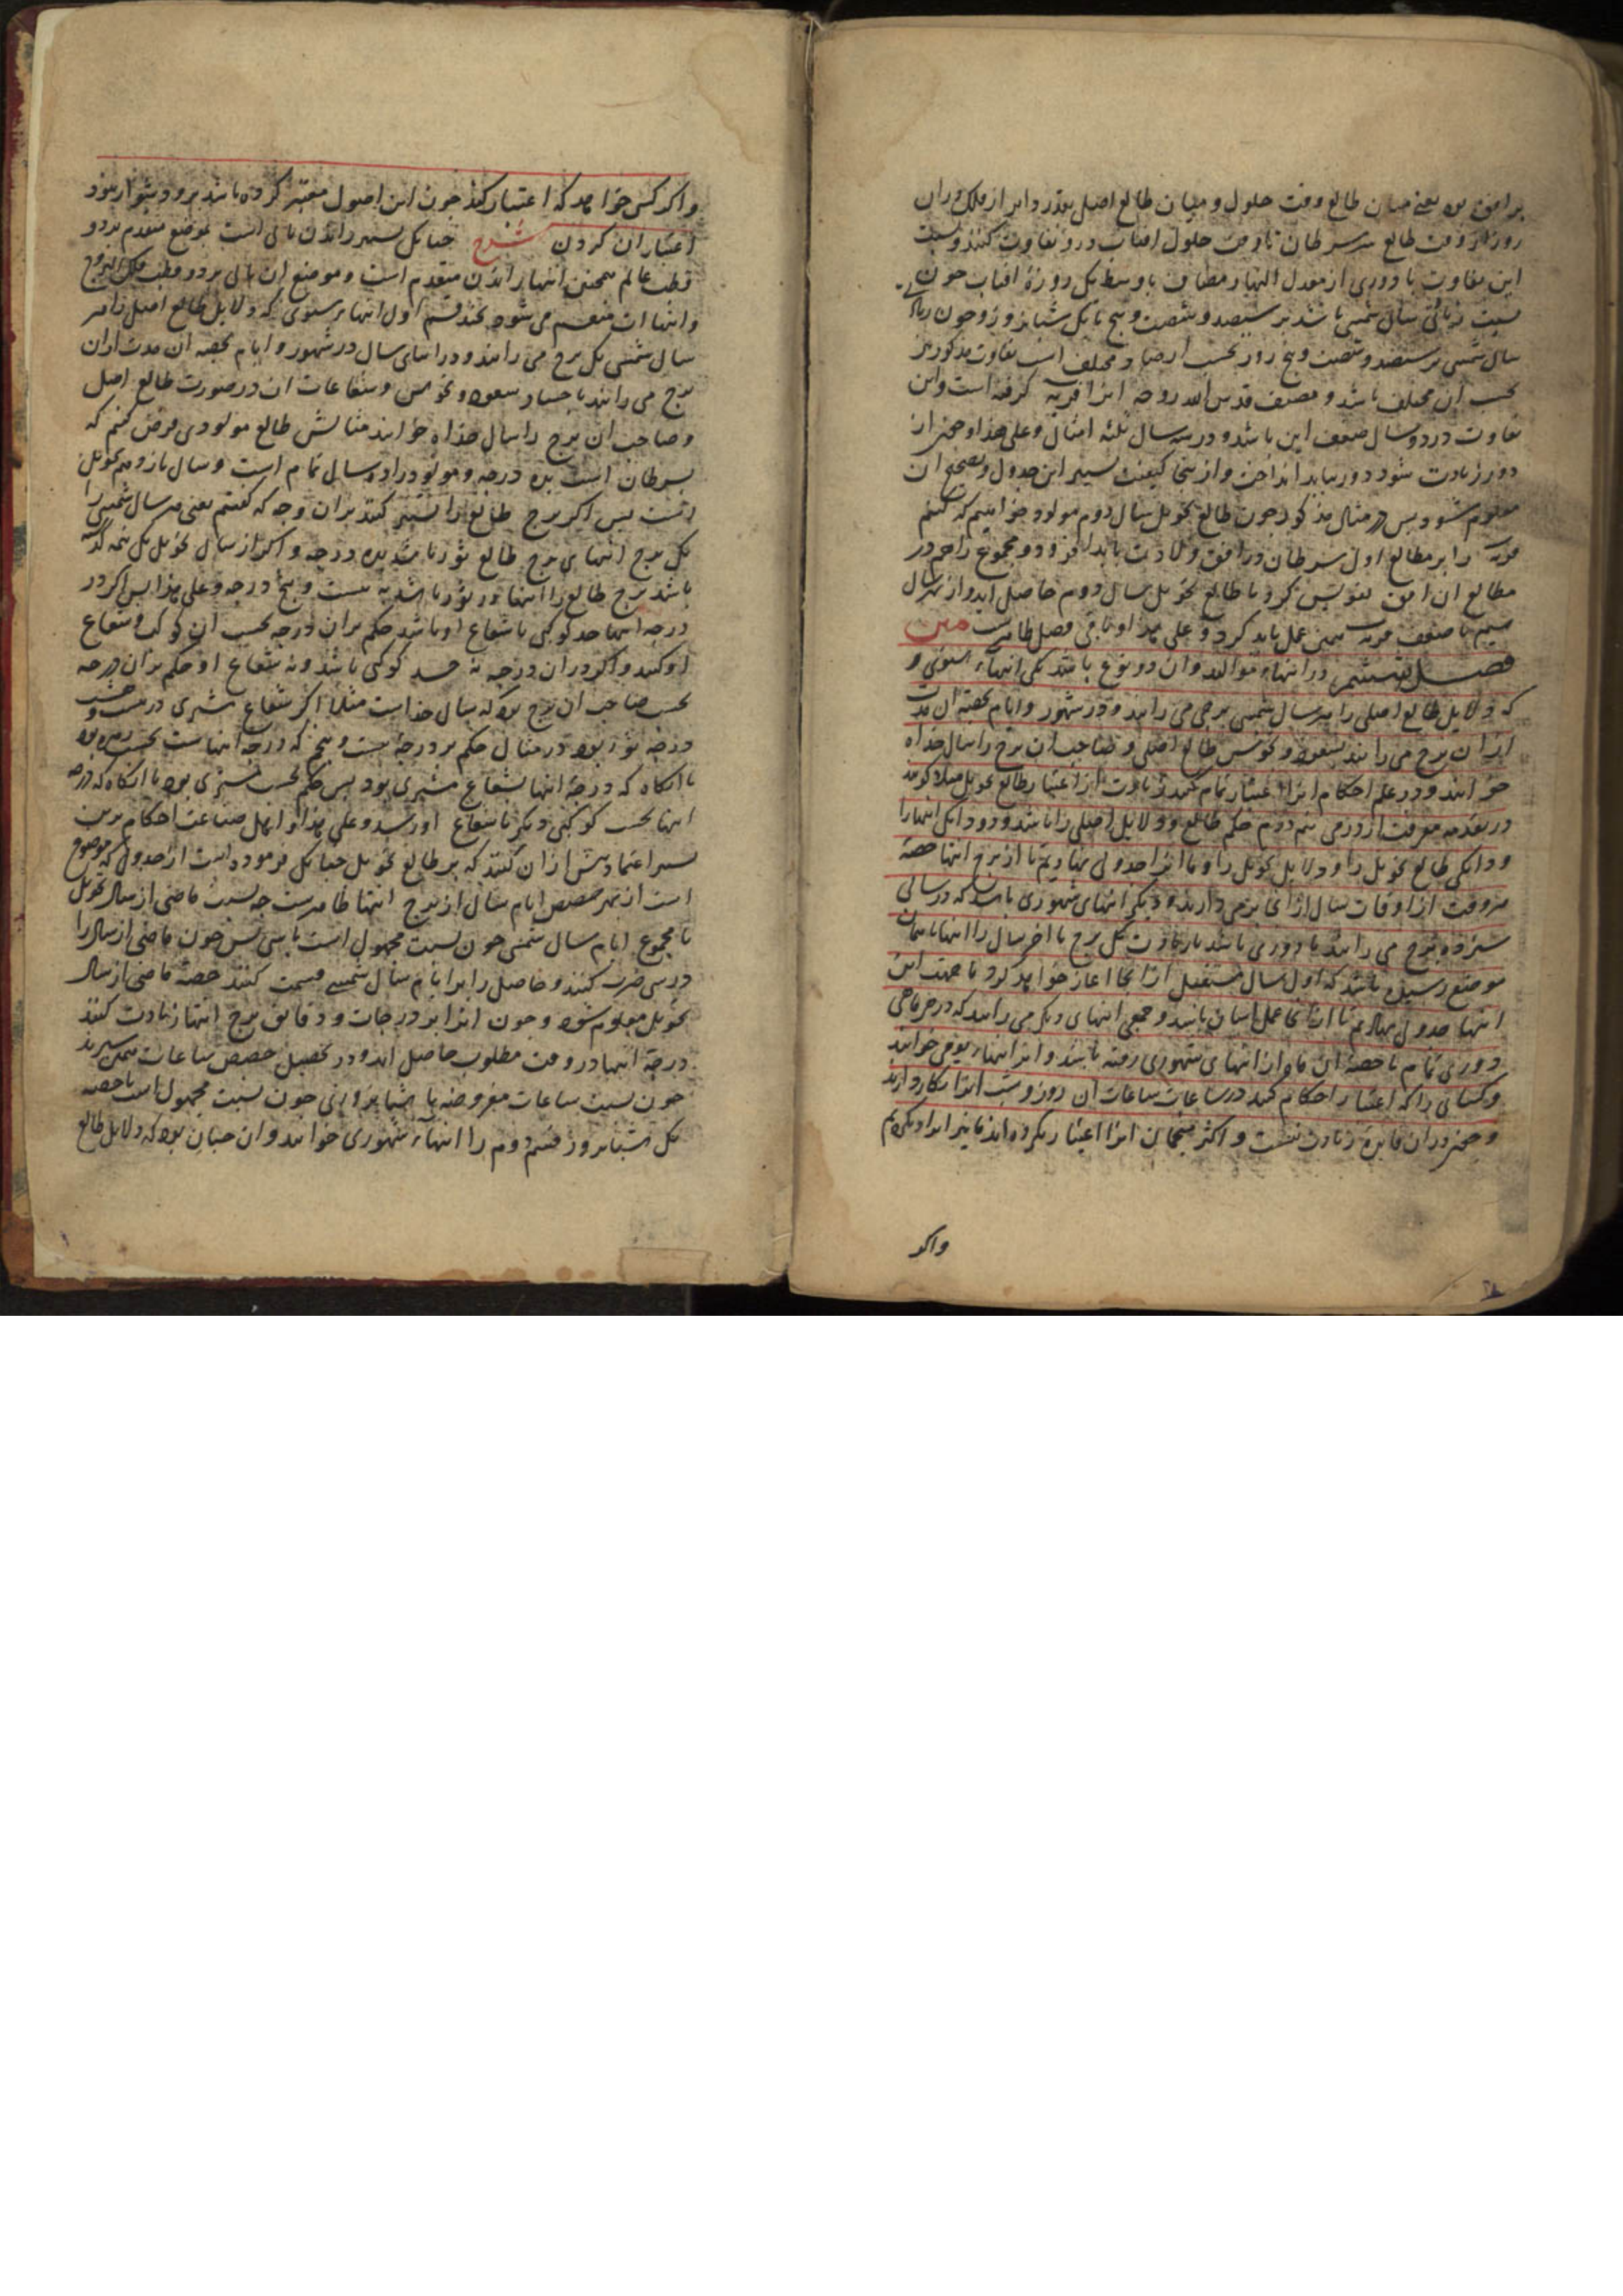 بر افق بود یعنی میان طالع وقت حلول و میان طالع اصل بقدر دایر از فلک در ان
روز از وقت طالع سر سرطان تا وقت حلول افتاب درو تفاوت کنند و نسبت
این تفاوت با دوری از معدل النهار مضاف با وسط یک روزهٔ افتاب چون
نسبت سال شمسی باشد بر سیصد و شصت و پنج با یک شبانروز و چون
سال شمسی بر سیصد و شصت و پنج روز بحسب ارصاد مختلف است تفاوت مذکور نیز
بحسب ان مختلف باشد و مصنف قدس الله روحه انرا گرفته است و این
تفاوت در دو سال ضعف این باشد و در سه سال ثلثه امثال و علی هذا و چون از
دور زیادت شود دور بباید انداخت و از اینجا کیفیت تسییر این جدول و تصحیح ان
معلوم شود پس در مثال مذکور چون طالع تحویل سال دوم مولود خواهیم که کنیم
را بر مطالع اول سرطان در افق ولادت باید افزود و مجموع را هم در
مطالع ان افق تقویس کرد تا طالع تحویل سال دوم حاصل اید و از بهر سال
سیم با ضعف همین عمل باید کرد و علی هذا و باقی فصل ظاهرست متن
فصل در انتهاء موالید وان دو نوع باشد یکی انتهاء سنوی و
که دلایل طالع اصلی را بهر سال شمسی برجی می رانند و در شهور و ایام بحصهٔ ان مدت
از ان برج می رانند بسعود و نحوس طالع اصلی و صاحب ان برج را سال خداه
خوانند و در علم احکام انرا اعتبار تمام کنند زیادت از اعتبار طالع تحویل
در تقدمه معرفت از درمی نیم درم حکم طالع و دلایل اصلی را باشد و دو دانک انتها را
و دانکی طالع تحویل را و دلایل تحویل را و ما انرا جدولی نهادیم تا از برج انتها حصهٔ
هر وقت از اوقات سال از انجا برمی دارند و دیگر انتهای شهوری باشد که در سالی
سیزده برج می رانند تا دوری باشد با زیادت یک برج تا اخر سال را انتها تا همان
موضع رسیده باشد که اول سال مستقبل از انجا اغاز خواهد کرد و ما جهت این
انتها جدول نهادیم تا از انجا عمل اسان باشد و جمعی انتهای دیگر می رانند که در هر ماهی
دوری تمام با حصهٔ ان ماه از انتهای شهوری رفته باشد و انرا انتهاء یومی خوانند
و کسانی را که اعتبار احکام کنند در ساعات ساعات ان روز و شب انرا بکار دارند
و چون در ان فایدهٔ زیادت نیست و اکثر منجمان انرا اعتبار نکرده اند ما نیز ایراد نکردیم
واکر
واکر کسی خواهد که اعتبار کند چون این اصول معتبر کرده باشد برو دشوار نبود
اعتبار ان کردن شرح چنانکه تسییر راندن تالی است بموضع متقدم بر دو
قطب عالم همچنین انتها راندن متقدم است و موضع ان تالی بر دو قطب فلک البروج
و انتهاات منقسم می شود بچند قسم اول انتهاء سنوی که دلایل طالع اصل را بهر
سال شمسی یک برج می رانند و در اثنای سال در شهور و ایام بحصه ان مدت از ان
برج می رانند با جساد سعود و نحوس و شعاعات ان در صورت طالع اصل
و صاحب ان برج را سال خداه خوانند مثالش طالع مولودی فرض کنیم که
سرطان است بده درجه و مولود را ده سال تمام است و سال یازدهم تحویل
است پس اگر برج طالع را تسییر کنند بران وجه که گفتیم یعنی هر سال شمسی را
یک برج انتهای برج طالع ثور باشد بده درجه و اکر از سال تحویل یک نیمه گذشته
باشد برج طالع را انتها در ثور باشد به بیست و پنج درجه و علی هذا پس اکر در
درجه انتها جسد کوکبی یا شعاع او باشد حکم بران درجه بحسب ان کوکب و شعاع
او کنند و اکر در ان درجه نه جسد کوکبی باشد و نه شعاع او حکم بران درجه
بحسب صاحب ان برج بود که سال خداست مثلا اکر شعاع مشتری در بیست و شش
درجه ثور بود در مثال حکم بر درجه بیست و پنج که درجه انتهاست بحسب زهره بود
تا انکاه که درجهٔ انتها بشعاع مشتری بود پس حکم بحسب مشتری بود تا انکاه که درجه
انتها بحسب کوکبی دیگر یا شعاع او رسد و علی هذا و اهل صناعت احکام برین
تسییر اعتماد بیش از ان کنند که بر طالع تحویل چنانکه فرموده است از جدولی که موضوع
است از بهر حصص ایام سال از برج انتها ظاهرست چه نسبت ماضی از سال تحویل
با مجموع ایام سال شمسی چون نسبت مجهول است با سی پس چون ماضی از سال را
در سی ضرب کنند و حاصل را بر ایام سال شمسی قسمت کنند حصهٔ ماضی از سال
تحویل معلوم شود و چون انرا بر درجات و دقایق برج انتها زیادت کنند
درجهٔ انتها در وقت مطلوب حاصل اید و در تحصیل حصص ساعات همین
چون نسبت ساعات مفروضه با شبانروزی چون نسبت مجهول است با حصه
یک شبانروز قسم دوم را انتهاء شهوری خوانند وان چنان بود که دلایل طالع